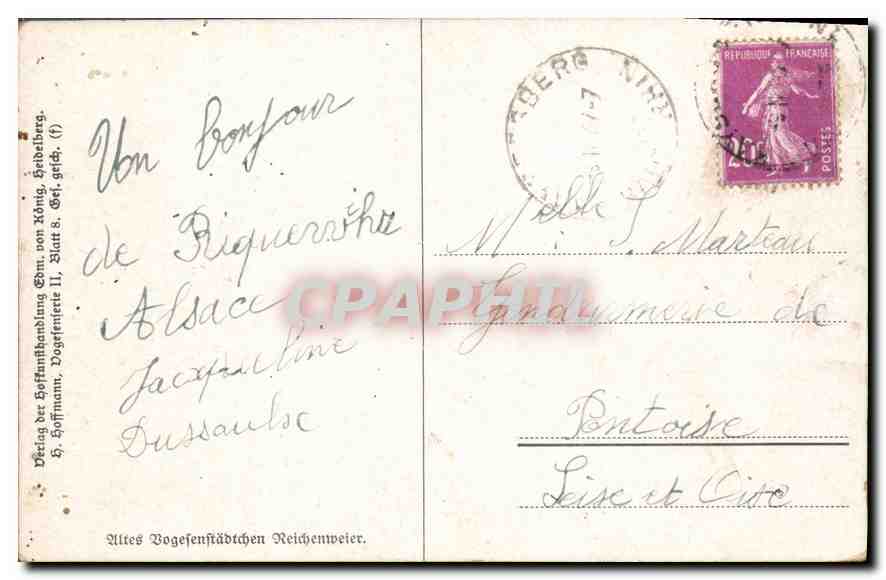 Verlag der Hofkunsthandlung Edm. von König, Heidelberg.
H. Hoffmann, Vogesenserie II, Blatt 8. Ges. gesch. (f)
Un bonjour
de Riquewihr
Alsace
Jacqueline
Dussaulx
Altes Vogesenstädtchen Reichenweier.
REPUBLIQUE FRANÇAISE
POSTES
Melle J. Marteau
Gendarmerie de
Pontoise
Seise et Oise
CPAPHIL